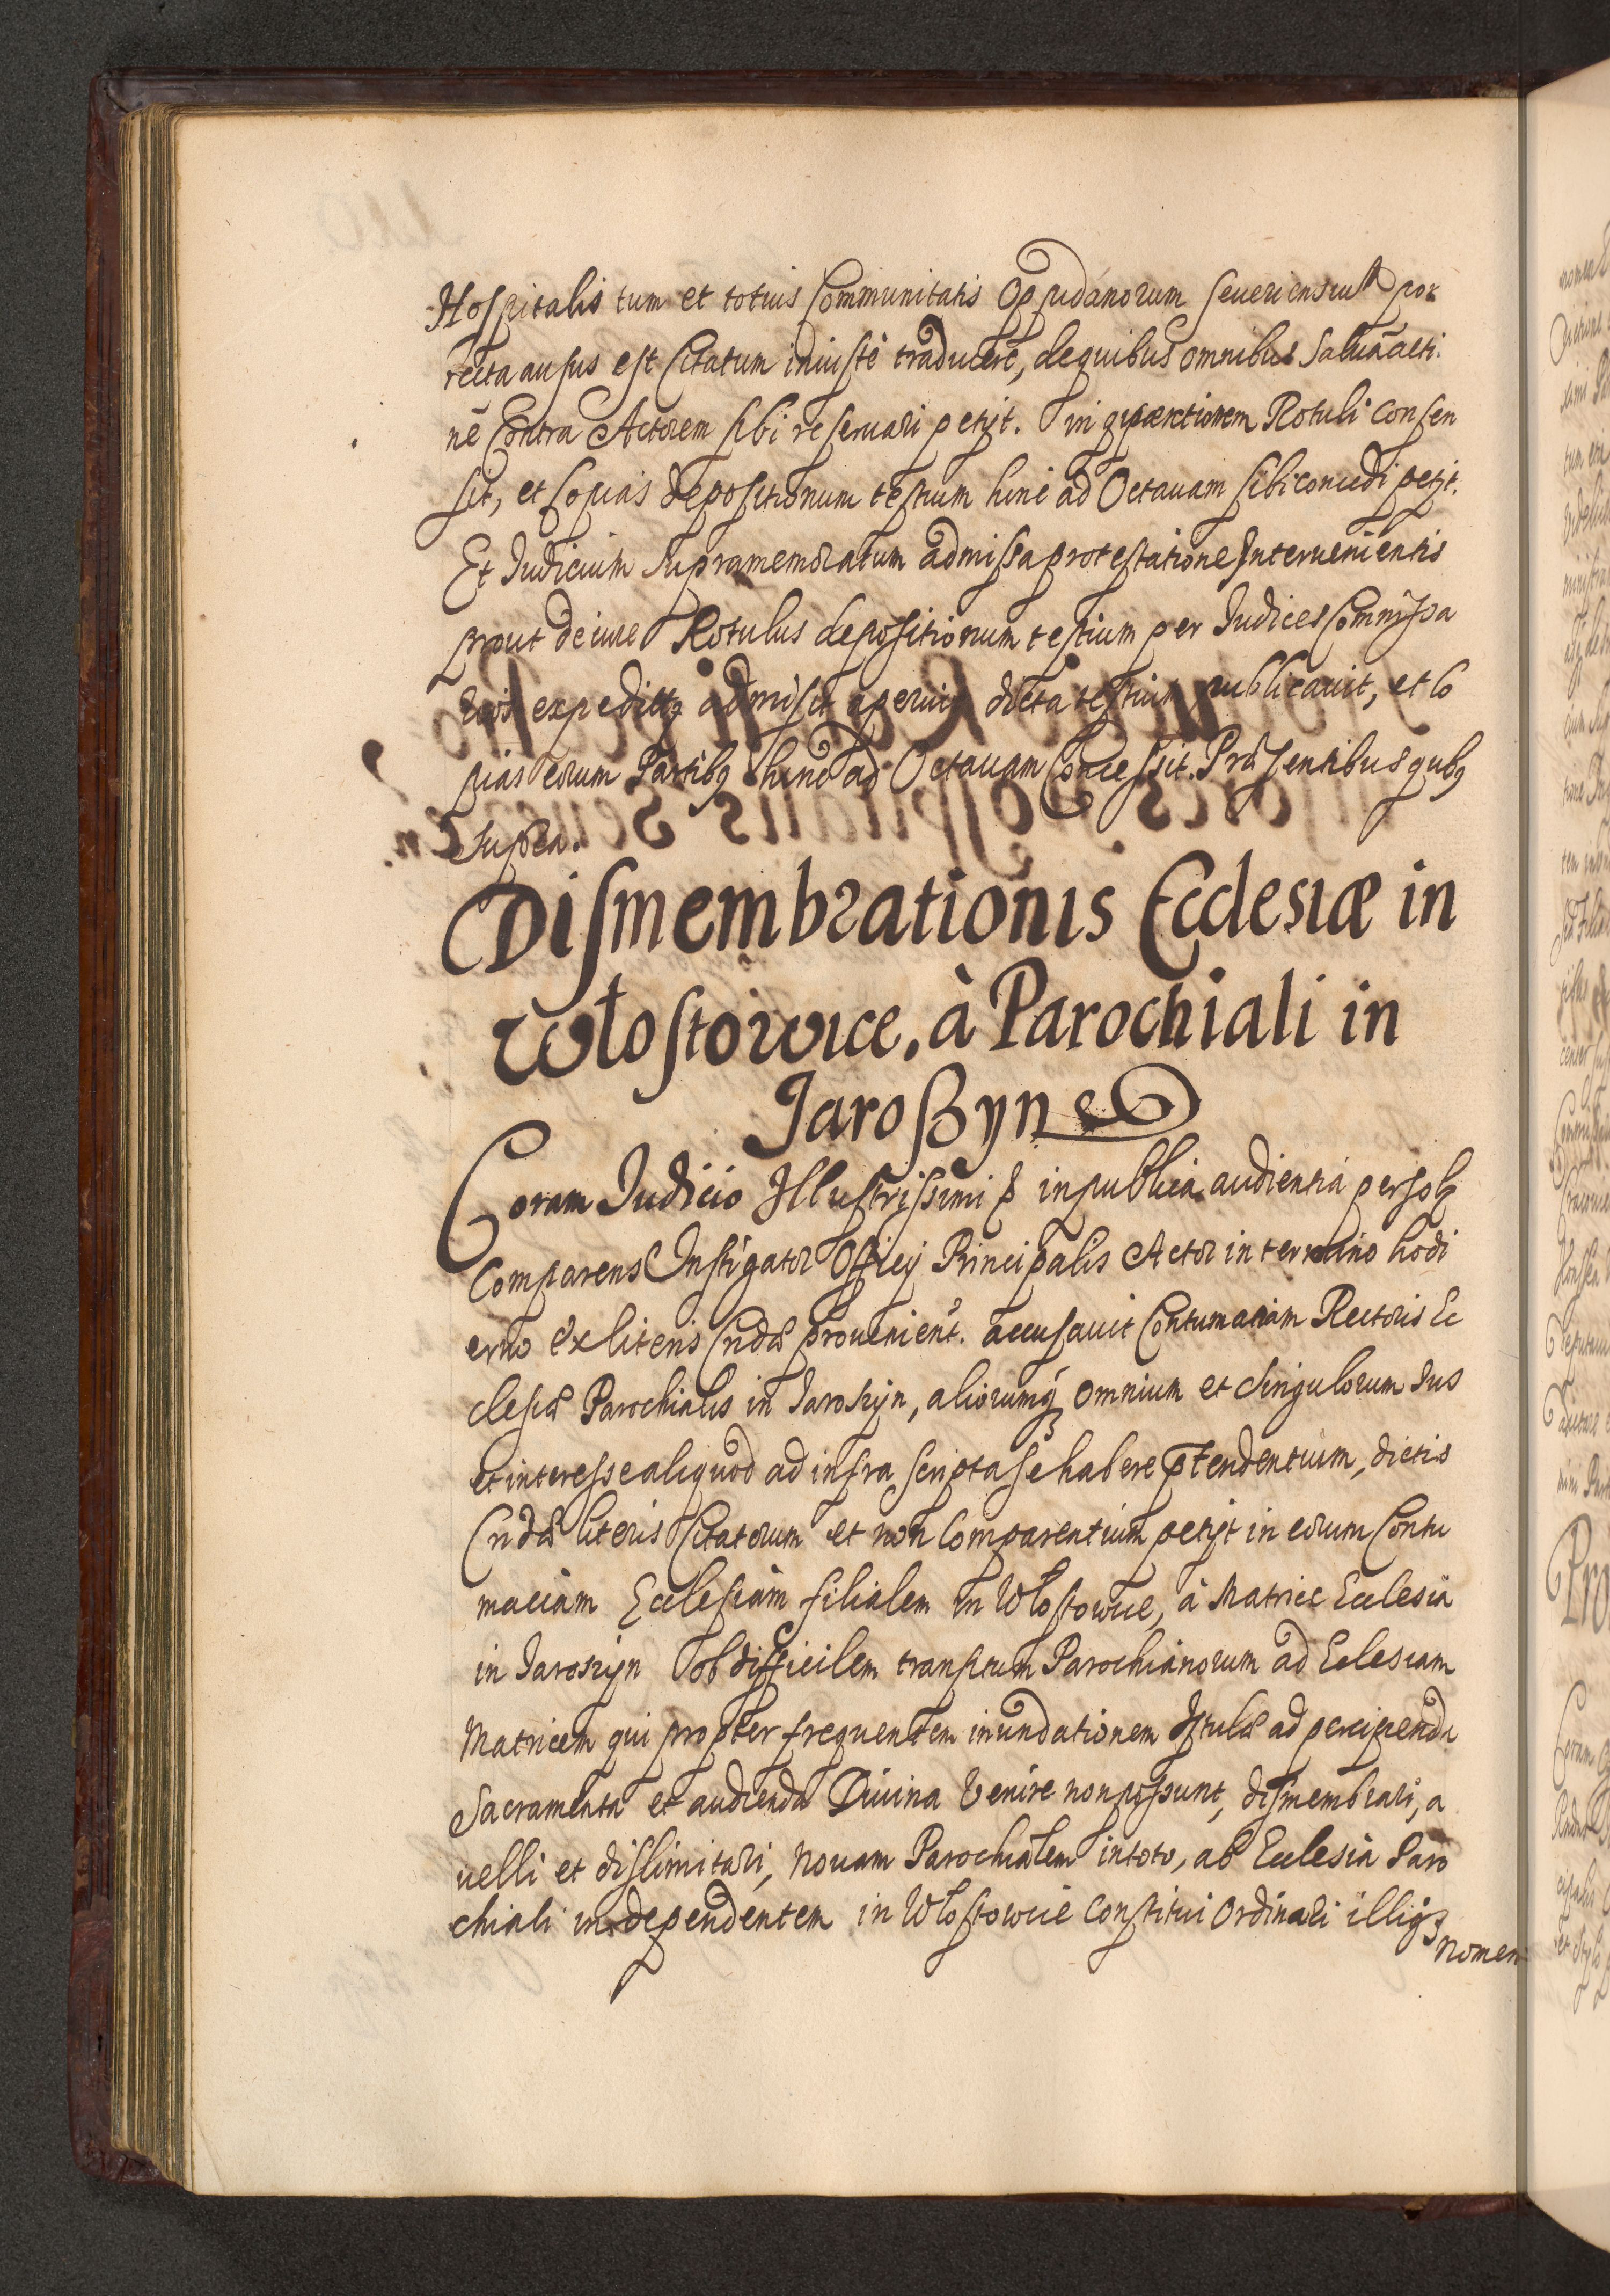 Hospitalis tum et totius Communitatis Oppidanorum Seueriensium por
recta ausus est Citatum iniuste traducere, de quibus omnibus Saluã acti.
nē Contra Actorem sibi reseruari petijt. in apertionem Rotuli consen
sit, et Copias depositionum testium hinc ad Octauam sibi concedi petijt.
Et Iudicium Supramemoratum admissa protestatione Interuenientis
prout de iure Rotulus depositionum testium per Iudices Commissa
rios expeditq admisit aperuit dicta testium publicauit, et Co
pias eorum Partibq hinc ad Octauam Concessit. Præsentibus qubq
Supra.
Dismembrationis Ecclesiæ in
Włostowice, à Parochiali in
Jaroßyn
Coram Iudicio Illustrissimi p in publica audientia persolr
Comparens Instigator Officij Principalis Actor in termino hodi
erno ex literis Cndæ prouenient. accusauit Contumaciam Rectoris Ec
clesiæ Parochialis in Jaroszyn, aliorumq omnium et singulorum Ius
et interesse aliquod ad infra scripta se habere ptendentium, dictis
Cndæ literis Citatorum et non Comparentium petijt in eorum Contu
maciam Ecclesiam filialem in Włostowice, à Matrice Ecclesia
in Jaroszyn ob difficilem transitum Parochianorum ad Eclesiam
Matricem qui propter frequentem inundationem Istulæ ad percipienda
Sacramenta et audienda Diuina Venire non possunt, dismembrari, a
uelli et dislimitari, nouam Parochialem in toto, ab Ecclesia Paro
chiali independentem in Włostowice Constitui Ordinari illiq
nomen